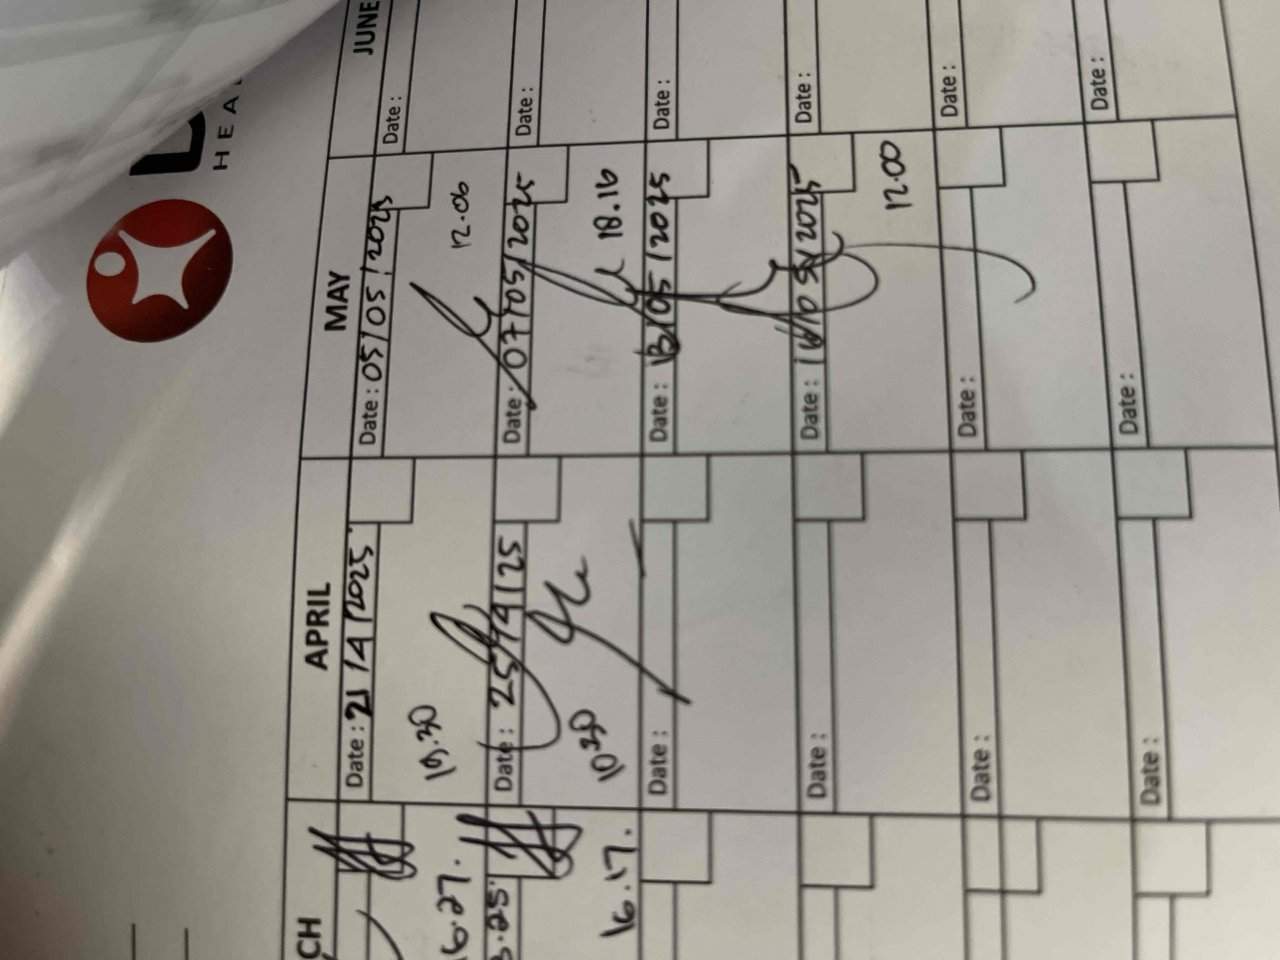 HEA
CH
APRIL
MAY
JUNE
Date : 21/4/2025
Date : 05/05/2025
Date :
6.27.
12.06
Date : 25/4/25
Date : 07/05/2025
Date :
16.17.
10 30
18.16
Date :
Date : 13/05/2025
Date :
Date :
Date : 16/05/2025
Date :
12.00
Date :
Date :
Date :
Date :
Date :
Date :